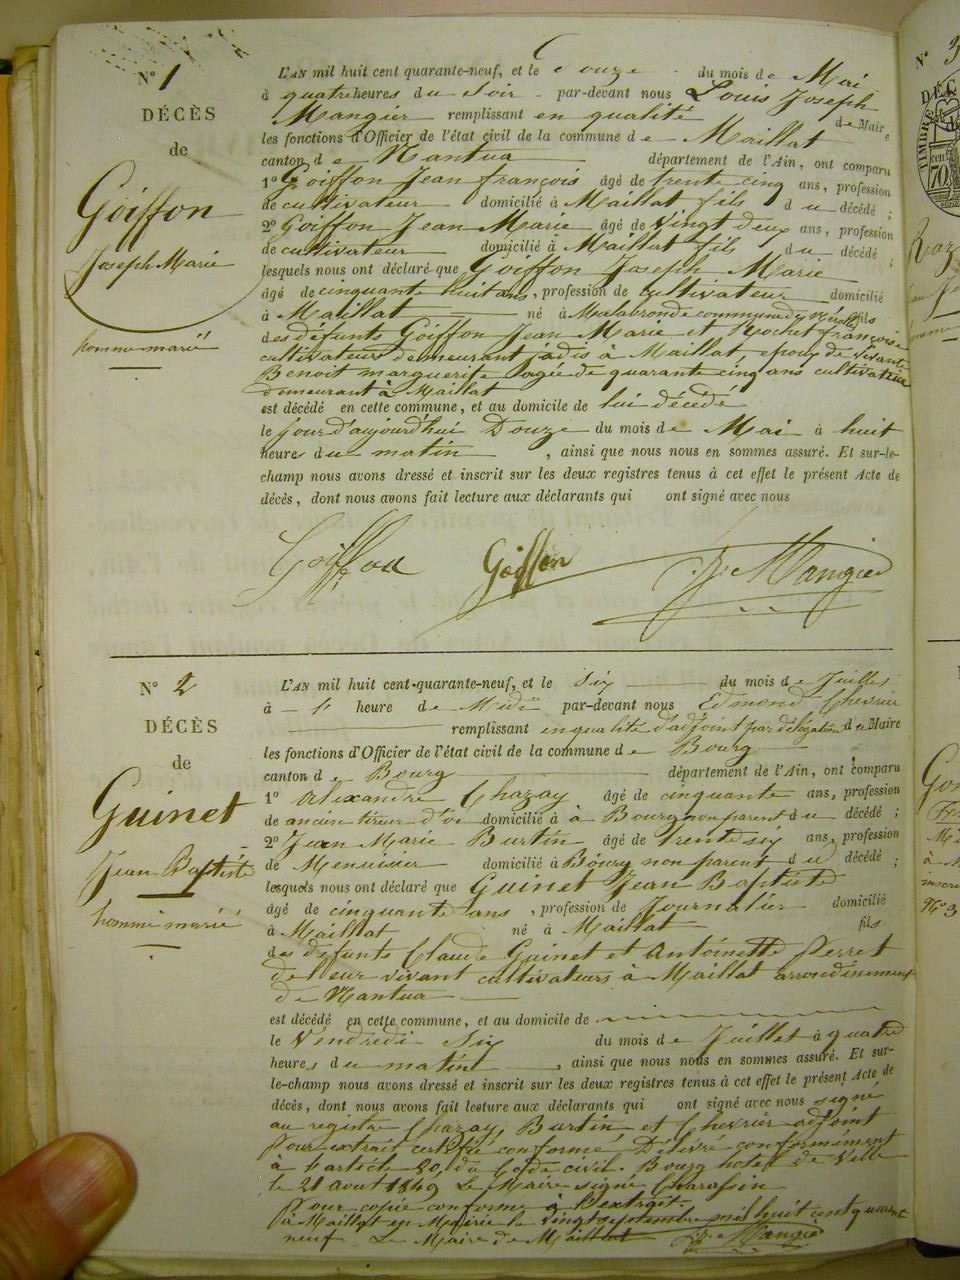 N° 1
DÉCÈS
de
Goiffon
Joseph Marie
homme marié
L'AN mil huit cent quarante-neuf, et le Douze du mois de Mai
à quatre heures du Soir par-devant nous Louis Joseph
Mangier remplissant en qualité de Maire
les fonctions d'Officier de l'état civil de la commune de Maillat
canton de Nantua département de l'Ain, ont comparu
1° Goiffon Jean françois âgé de trente cinq ans, profession
de cultivateur domicilié à Maillat fils du décédé ;
2° Goiffon Jean Marie âgé de Vingt deux ans, profession
de cultivateur domicilié à Maillat fils du décédé ;
lesquels nous ont déclaré que Goiffon Joseph Marie
âgé de cinquante huit ans, profession de cultivateur domicilié
à Maillat né à commune d' fils
des défunts Goiffon Jean Marie et Rochet françoise
cultivateurs demeurant jadis à Maillat, epoux de vivante
Benoit marguerite agée de quarante cinq ans cultivateur
demeurant à Maillat
est décédé en cette commune, et au domicile de lui décédé
le jour d'aujourd'hui Douze du mois de Mai à huit
heures du matin, ainsi que nous nous en sommes assuré. Et sur-le-
champ nous avons dressé et inscrit sur les deux registres tenus à cet effet le présent Acte de
décès, dont nous avons fait lecture aux déclarants qui ont signé avec nous
Goiffon Goiffon Mangier
N° 2
DÉCÈS
de
Guinet
Jean Baptiste
homme marié
L'AN mil huit cent-quarante-neuf, et le Six du mois de Juillet
à heure de Midi par-devant nous Edmond Chevrier
remplissant en qualité d'adjoint par délégation du Maire
les fonctions d'Officier de l'état civil de la commune de Bourg
canton de Bourg département de l'Ain, ont comparu
1° Alexandre Chazay âgé de cinquante ans, profession
de ancien tireur d'or domicilié à à Bourg non parent du décédé ;
2° Jean Marie Burtin âgé de trente six ans, profession
de Menuisier domicilié à Bourg non parent du décédé ;
lesquels nous ont déclaré que Guinet Jean Baptiste
âgé de cinquante ans, profession de Journalier domicilié
à Maillat né à Maillat fils
des défunts Claude Guinet et Antoinette Perret
de leur vivant cultivateurs à Maillat arrondissement
de Nantua
est décédé en cette commune, et au domicile de
le Vendredi Six du mois de Juillet à quatre
heures du matin, ainsi que nous nous en sommes assuré. Et sur-
le-champ nous avons dressé et inscrit sur les deux registres tenus à cet effet le présent Acte de
décès, dont nous avons fait lecture aux déclarants qui ont signé avec nous signé
au registre Chazay, Burtin et Chevrier adjoint
Pour extrait certifié conforme Délivré conformément
à l'article 80, du Code civil. Bourg hotel de Ville
le 21 aout 1849 Le Maire signé Charassin
Pour copie conforme à l'extrait.
à Maillat en Mairie le vingt septembre mil huit cent quarante
neuf. Le Maire de Maillat Mangier